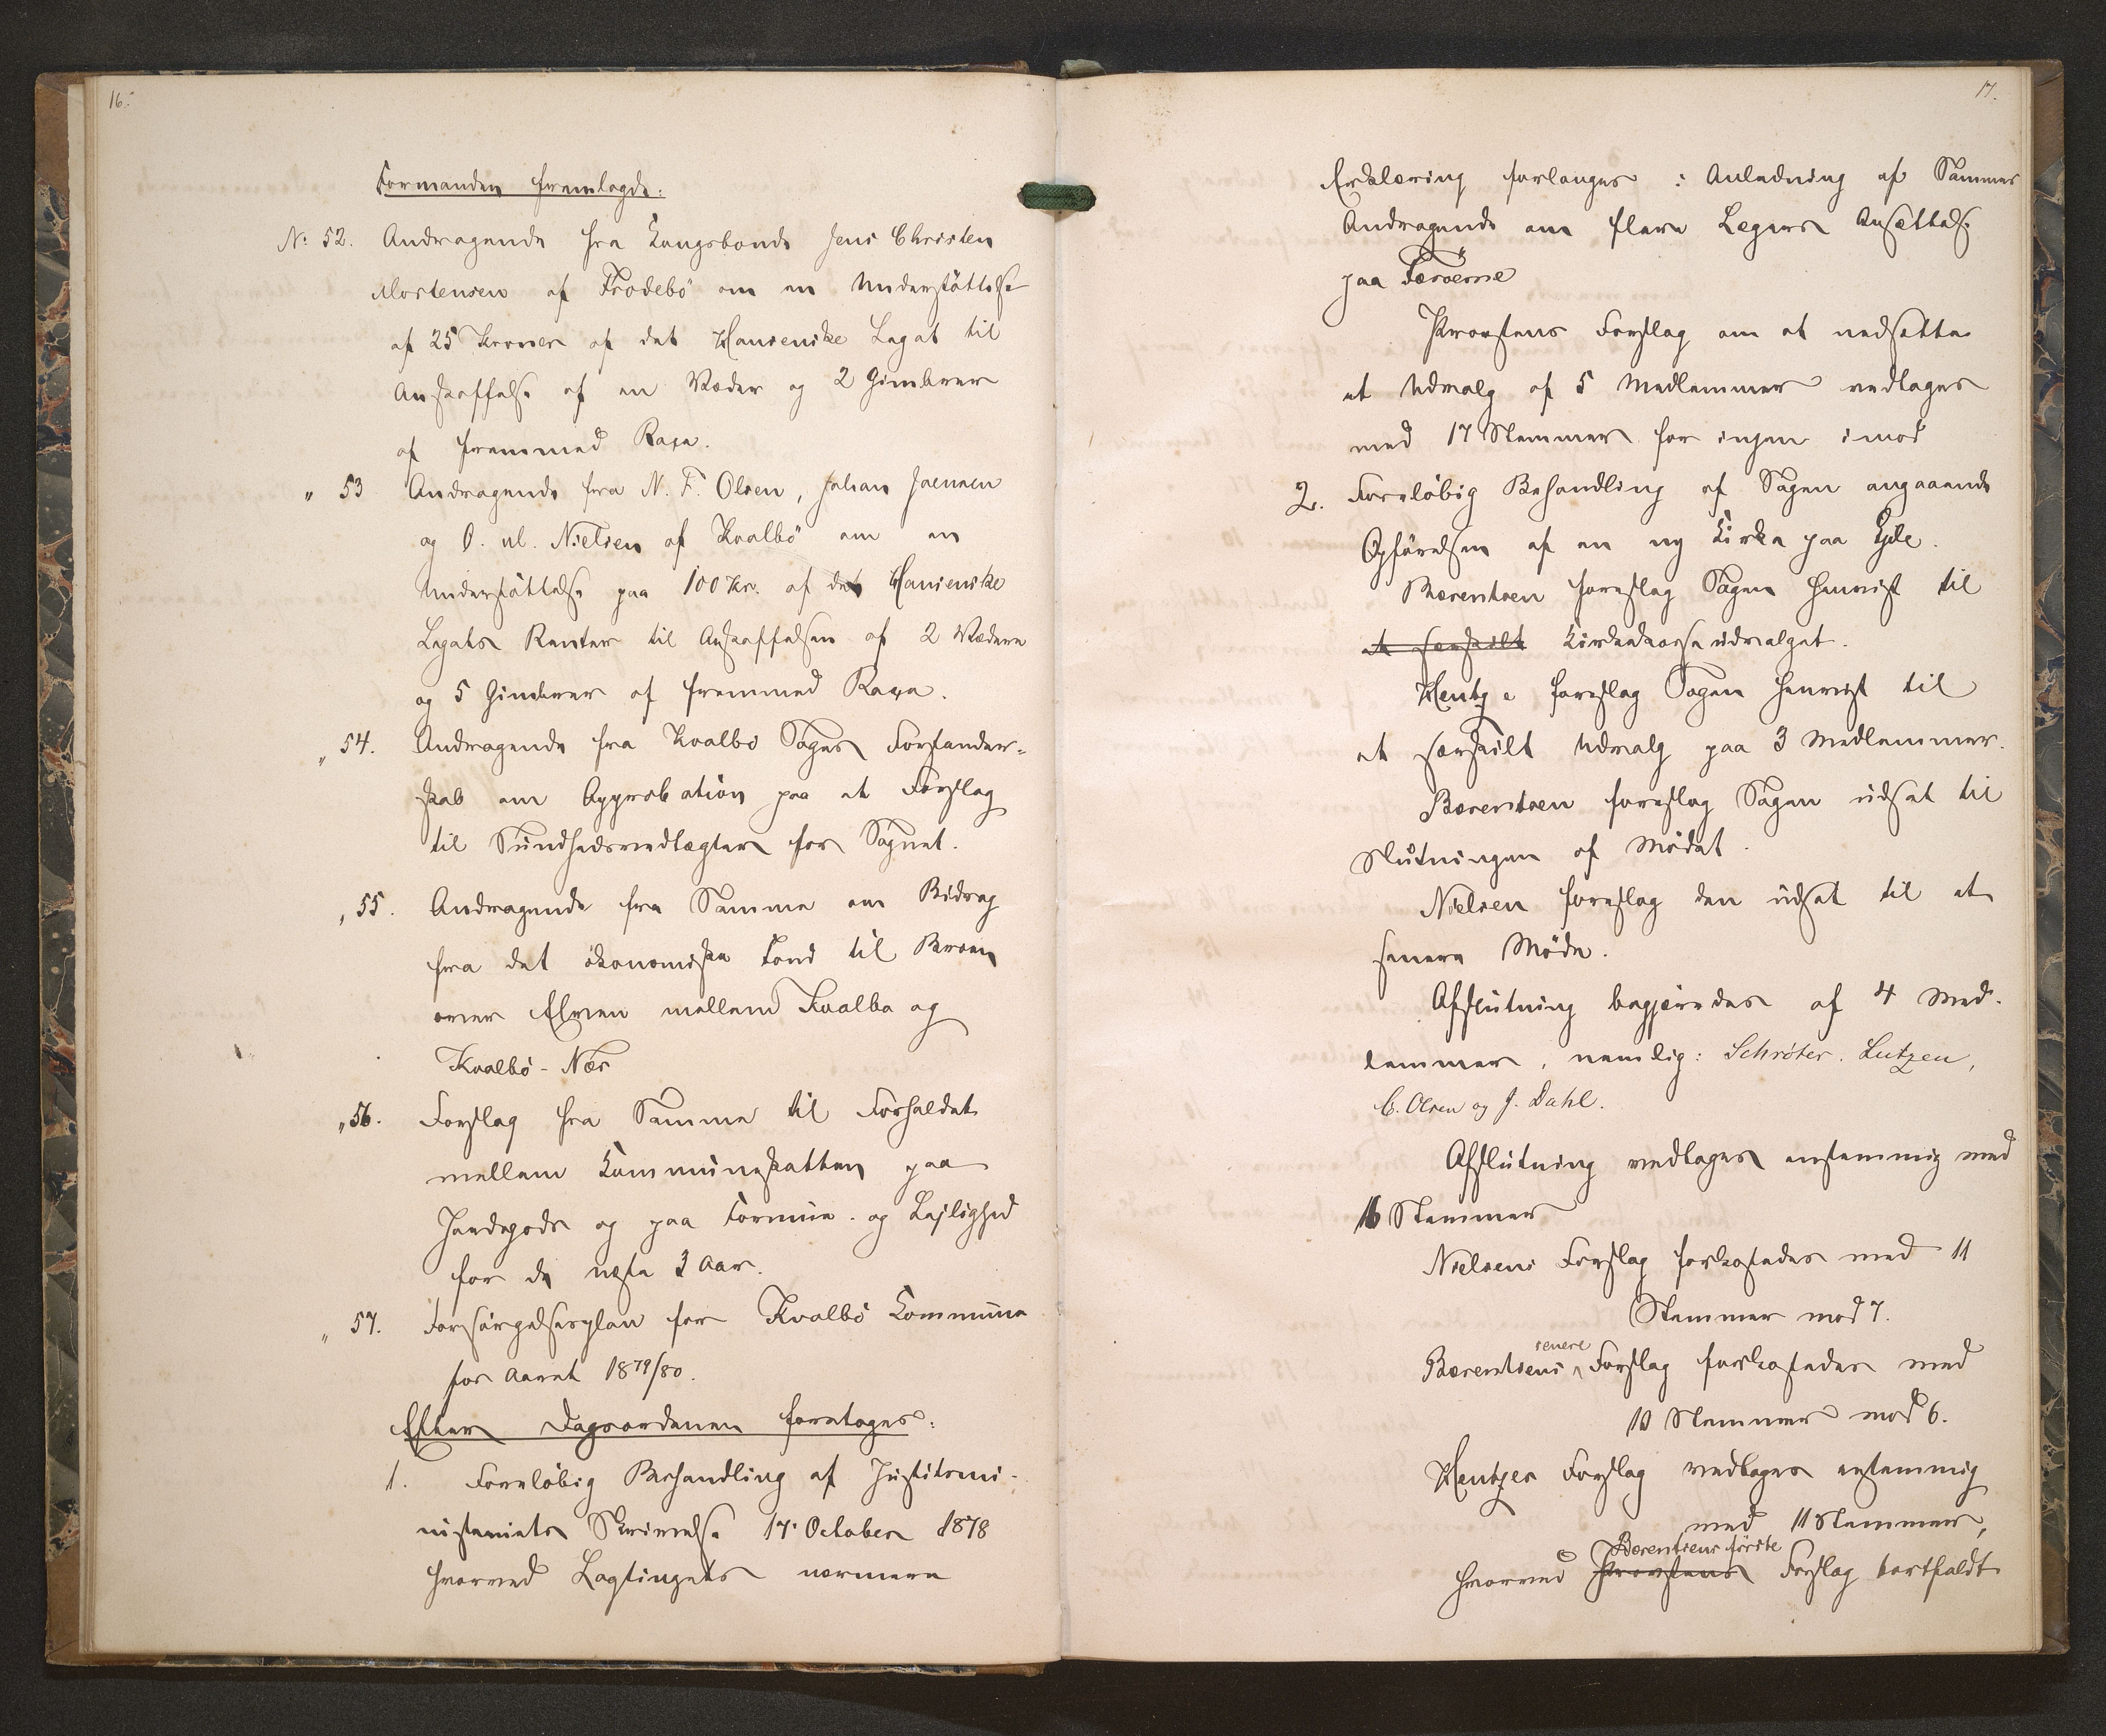 16.
Formanden fremlagde:
No 52. Andragende fra Kongsbonde Jens Christen
Mortensen af Frodebö om en Understöttelse
af 25 Kroner af det Hansenske Legat til
Anskaffelse af en Væder og 2 Gimbrer
af fremmed Race.
" 53 Andragende fra N. F. Olsen, Johan Joensen
og O. M. Nielsen af Kvalbö om en
Understöttelse paa 100 Kr. af det Hansenske
Legats Renter til Anskaffelsen af 2 Vædere
og 5 Gimbrer af fremmed Race.
" 54. Andragende fra Kvalbö Sogns Forstander-
skab om Approbation paa et Forslag
til Sundhedsvedtægter for Sognet.
" 55. Andragende fra Samme om Bidrag
fra det ökonomiske Fond til Broen
over Elven mellem Kvalbö og
Kvalbö-Næs
" 56. Forslag fra Samme til Forholdet
mellem Kommuneskatten paa
Jordegods og paa Formue- og Lejlighed
for de næste 3 Aar.
" 57. Forsörgelsesplan for Kvalbö Kommune
for Aaret 1879/80.
Efter Dagsordenen foretoges:
1. Foreløbig Behandling af Justitsmi-
nisteriets Skrivelse 17. October 1878
hvorved Lagtingets nærmere
17.
Erklæring forlanges i Anledning af Sammes
Andragende om flere Lægers Ansættelse
paa Færöerne
Provstens Forslag om at nedsætte
et Udvalg af 5 Medlemmer vedtages
med 17 Stemmer for ingen imod
2. Foreløbig Behandling af Sagen angaaende
Opförelsen af en ny Kirke paa Ejde.
Bærentsen foreslog Sagen henvist til
et særskilt Kirkekasseudvalget.
Hentze foreslog Sagen henvist til
et særskilt Udvalg paa 3 Medlemmer.
Bærentsen foreslog Sagen udsat til
Slutningen af Mödet.
Nielsen foreslog den udsat til et
senere Möde.
Afslutning begjæredes af 4 Med-
lemmer, nemlig: Schröter. Lutzen,
C. Olsen og J. Dahl.
Afslutning vedtages enstemmig med
16 Stemmer
Nielsens Forslag forkastedes med 11
Stemmer mod 7.
senere
Bærentsens Forslag forkastedes med
10 Stemmer mod 6.
Hentzes Forslag vedtages enstemmig
med 11 Stemmer,
Bærentsens förste
hvorved Provstens Forslag bortfaldt